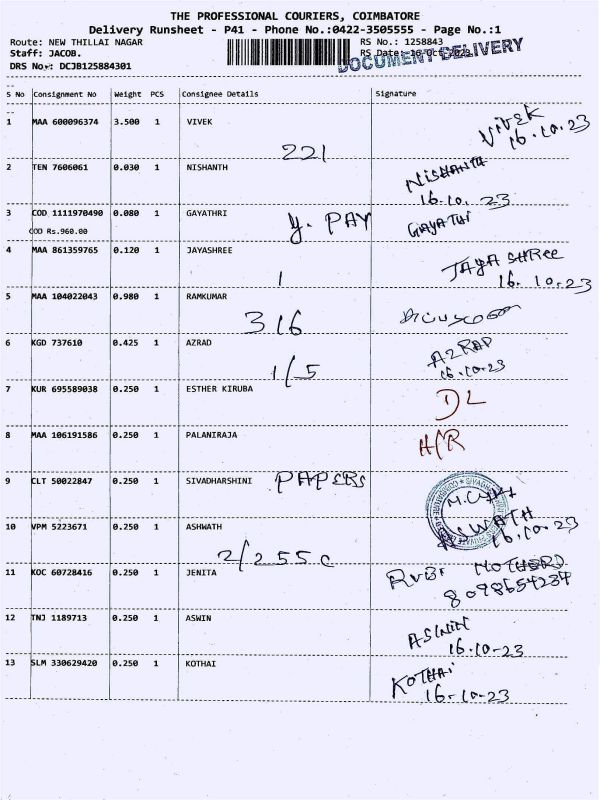 THE PROFESSIONAL COURIERS, COIMBATORE
Delivery Runsheet - P41 - Phone No.:0422-3505555 - Page No.:1
Route: NEW THILLAI NAGAR RS No.: 1258843
Staff: JACOB. RS Date: 16-Oct-2023
DOCUMENT DELIVERY
DRS No.: DCJB125884301
S No Consignment No Weight PCS Consignee Details Signature
1 MAA 600096374 3.500 1 VIVEK VIVEK
16.10.23
221
2 TEN 7606061 0.030 1 NISHANTH NISHANTH
16.10.23
3 COD 1111970490 0.080 1 GAYATHRI y. PAY GAYATHI
COD Rs.960.00
4 MAA 861359765 0.120 1 JAYASHREE JAYA SHRee
1 16.10.23
5 MAA 104022043 0.980 1 RAMKUMAR
316
6 KGD 737610 0.425 1 AZRAD AZRAD
1/5 16.10.23
7 KUR 695589038 0.250 1 ESTHER KIRUBA DL
8 MAA 106191586 0.250 1 PALANIRAJA H/R
9 CLT 50022847 0.250 1 SIVADHARSHINI PAPERS
10 VPM 5223671 0.250 1 ASHWATH ASWATH
16.10.23
2/255C
11 KOC 60728416 0.250 1 JENITA RUBI MOTHERS
8098654234
12 TNJ 1189713 0.250 1 ASWIN ASWIN
16.10-23
13 SLM 330629420 0.250 1 KOTHAI KOTHAI
16-10-23